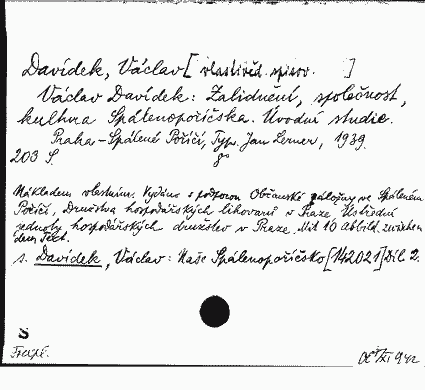 Davídek, Václav [vlastivěd. spisov. ]
Václav Davídek: Zalidnění, společnost,
kultura Spálenopoříčska. Úvodní studie.
Praha-Spálené Poříčí, Typ. Jan Lerner, 1939.
203 S. 8°
Nákladem vlastním. Vydáno s podporou Občanské záložny ve Spáleném
Poříčí, Družstva hospodářských lihovarů v Praze, Ústřední
jednoty hospodářských družstev v Praze. Mit 10 Abbild. zwischen
dem Text.
s. Davídek, Václav: Naše Spálenopoříčsko [142021] Díl 2.
S